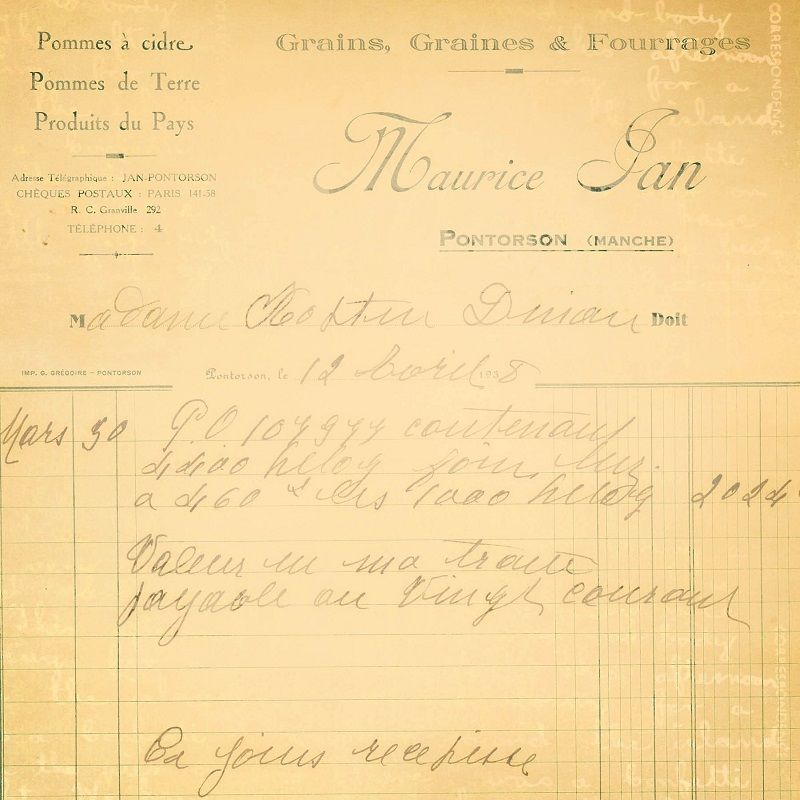 Pommes à cidre
Pommes de Terre
Produits du Pays
Adresse Télégraphique : JAN-PONTORSON
CHÈQUES POSTAUX : PARIS 141-58
R. C. Granville 292
TÉLÉPHONE : 4
Grains, Graines & Fourrages
Maurice Jan
PONTORSON (MANCHE)
Madame Dinan Doit
IMP. G. GRÉGOIRE – PONTORSON
Pontorson, le 12 Avril 1938
Mars 30 P.O contenant
4400 kilog foin
a 460 les 1000 kilog 2024
Valeur en ma traite
payable au Vingt courant
Ci joins recepisse
CORRESPONDENCE
no body
afternoon
for a